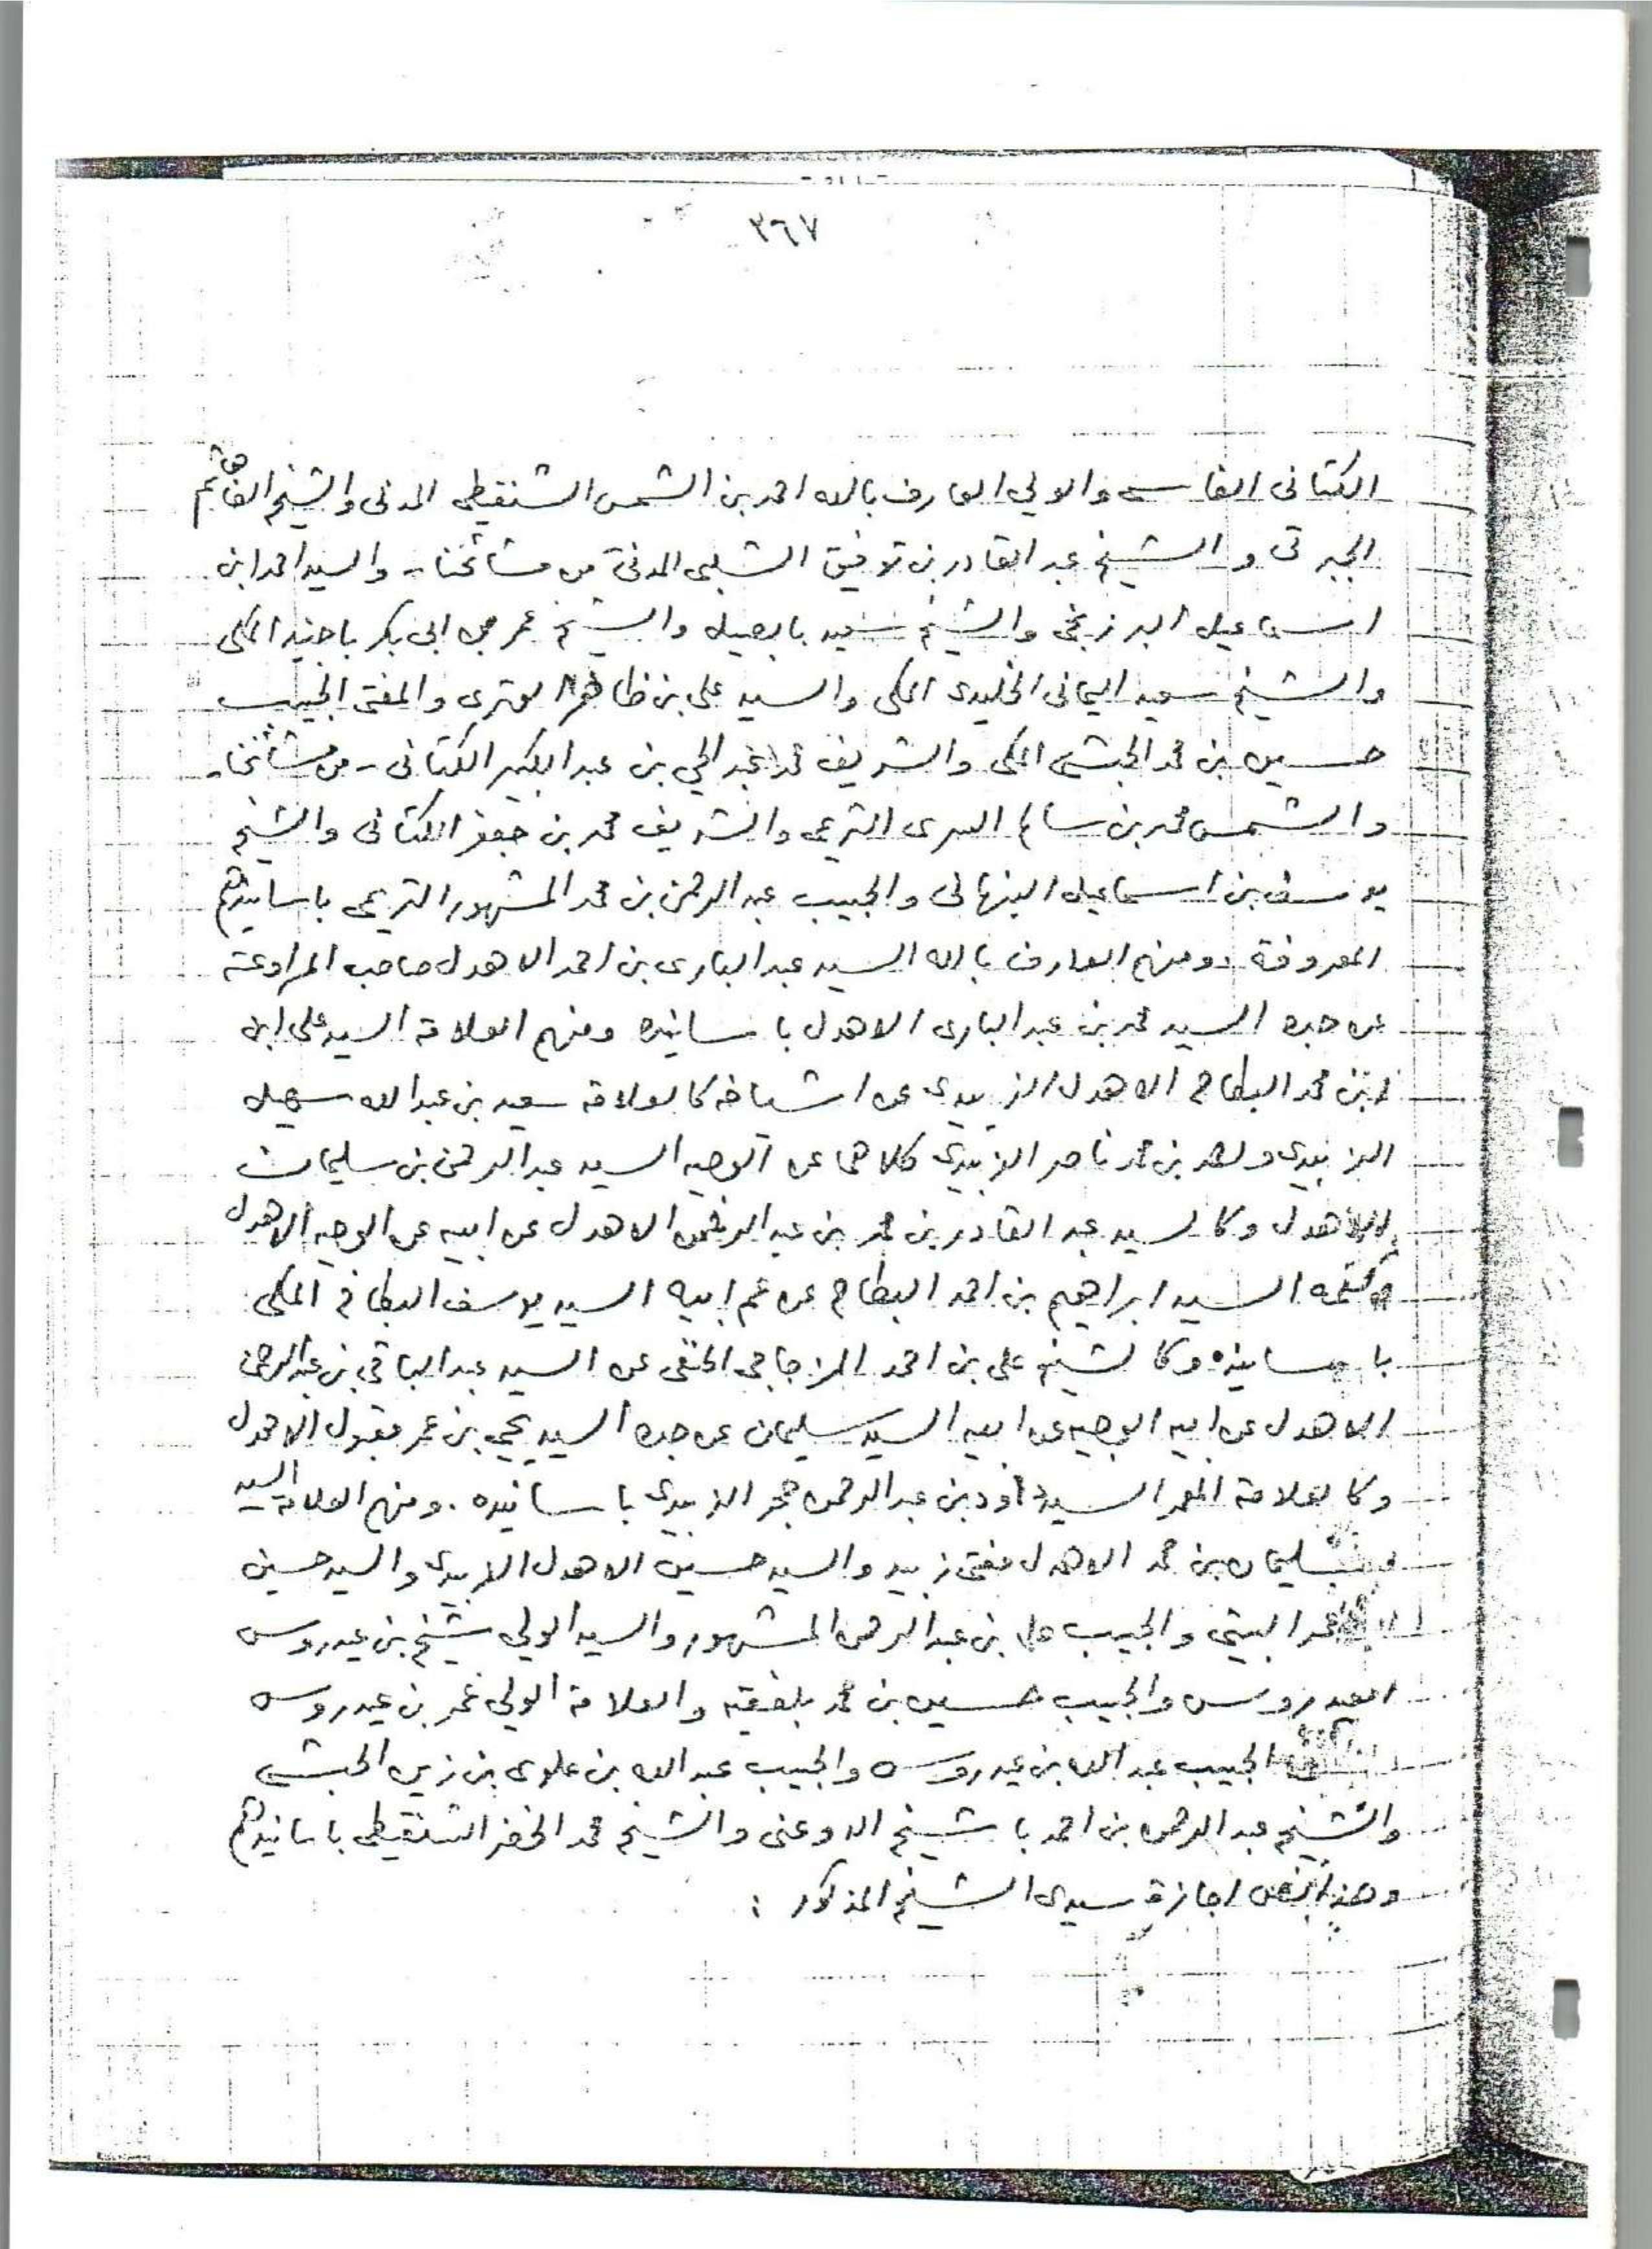 ٣٦٧
الكتانى الفاسى والولي العارف بالله احمد بن الشمس الشنقيطى المدنى والشيخ الفا هاشم
الجبرتى والشيخ عبد القادر بن توفيق الشلبى المدنى من مشائخنا - والسيد احمد ابن
اسماعيل البرزنجى والشيخ سعيد بابصيل والشيخ عمر بن ابى بكر باجنيد المكى
والشيخ سعيد اليمانى الخليدى المكى والسيد على بن ظاهر الوترى والمفتى الحبيب
حسين بن محمد الحبشى المكى والشريف محمد عبد الحي بن عبد الكبير الكتانى - من مشائخنا -
والشمس محمد بن سالم السرى التريمى والشريف محمد بن جعفر الكتانى والشيخ
يوسف بن اسماعيل النبهانى والحبيب عبد الرحمن بن محمد المشهور التريمى باسانيدهم
المعروفة . ومنهم العارف بالله السيد عبد البارى بن احمد الاهدل صاحب المراوعة
عن جده السيد محمد بن عبد البارى الاهدل باسانيده ومنهم العلامة السيد على ابن
ابن محمد البطاح الاهدل الزبيدى عن اشياخه كالعلامة سعيد بن عبد الله سهيل
الزبيدى ومحمد بن محمد ناصر الزبيدى كلاهما عن الوجيه السيد عبد الرحمن بن سليمان
الاهدل وكالسيد عبد القادر بن محمد بن عبد الرحمن الاهدل عن ابيه عن الوجيه الاهدل
السيد ابراهيم بن احمد البطاح عن عم ابيه السيد يوسف البطاح المكى
باسانيده وكالشيخ على بن احمد المزجاجى الحنفى عن السيد عبد الباقي بن عبد الرحمن
الاهدل عن ابيه الوجيه عن ابيه السيد سليمان عن جده السيد يحيى بن عمر مقبول الاهدل
وكالعلامة المعمر السيد داود بن عبد الرحمن حجر الزبيدى باسانيده . ومنهم العلامة السيد
سليمان بن محمد الاهدل مفتى زبيد والسيد حسين الاهدل الزبيدى والسيد حسين
محمد البيتى والحبيب على بن عبد الرحمن المشهور والسيد الولي شيخ بن عيدروس
العيدروس والحبيب حسين بن محمد بلفقيه والعلامة الولي عمر بن عيدروس
الحبيب عبد الله بن عيدروس والحبيب عبد الله بن علوى بن زين الحبشى
والشيخ عبد الرحمن بن احمد باشيخ الدوعنى والشيخ محمد الخضر الشنقيطى باسانيدهم
وهذا نص اجازة سيدى الشيخ المذكور :